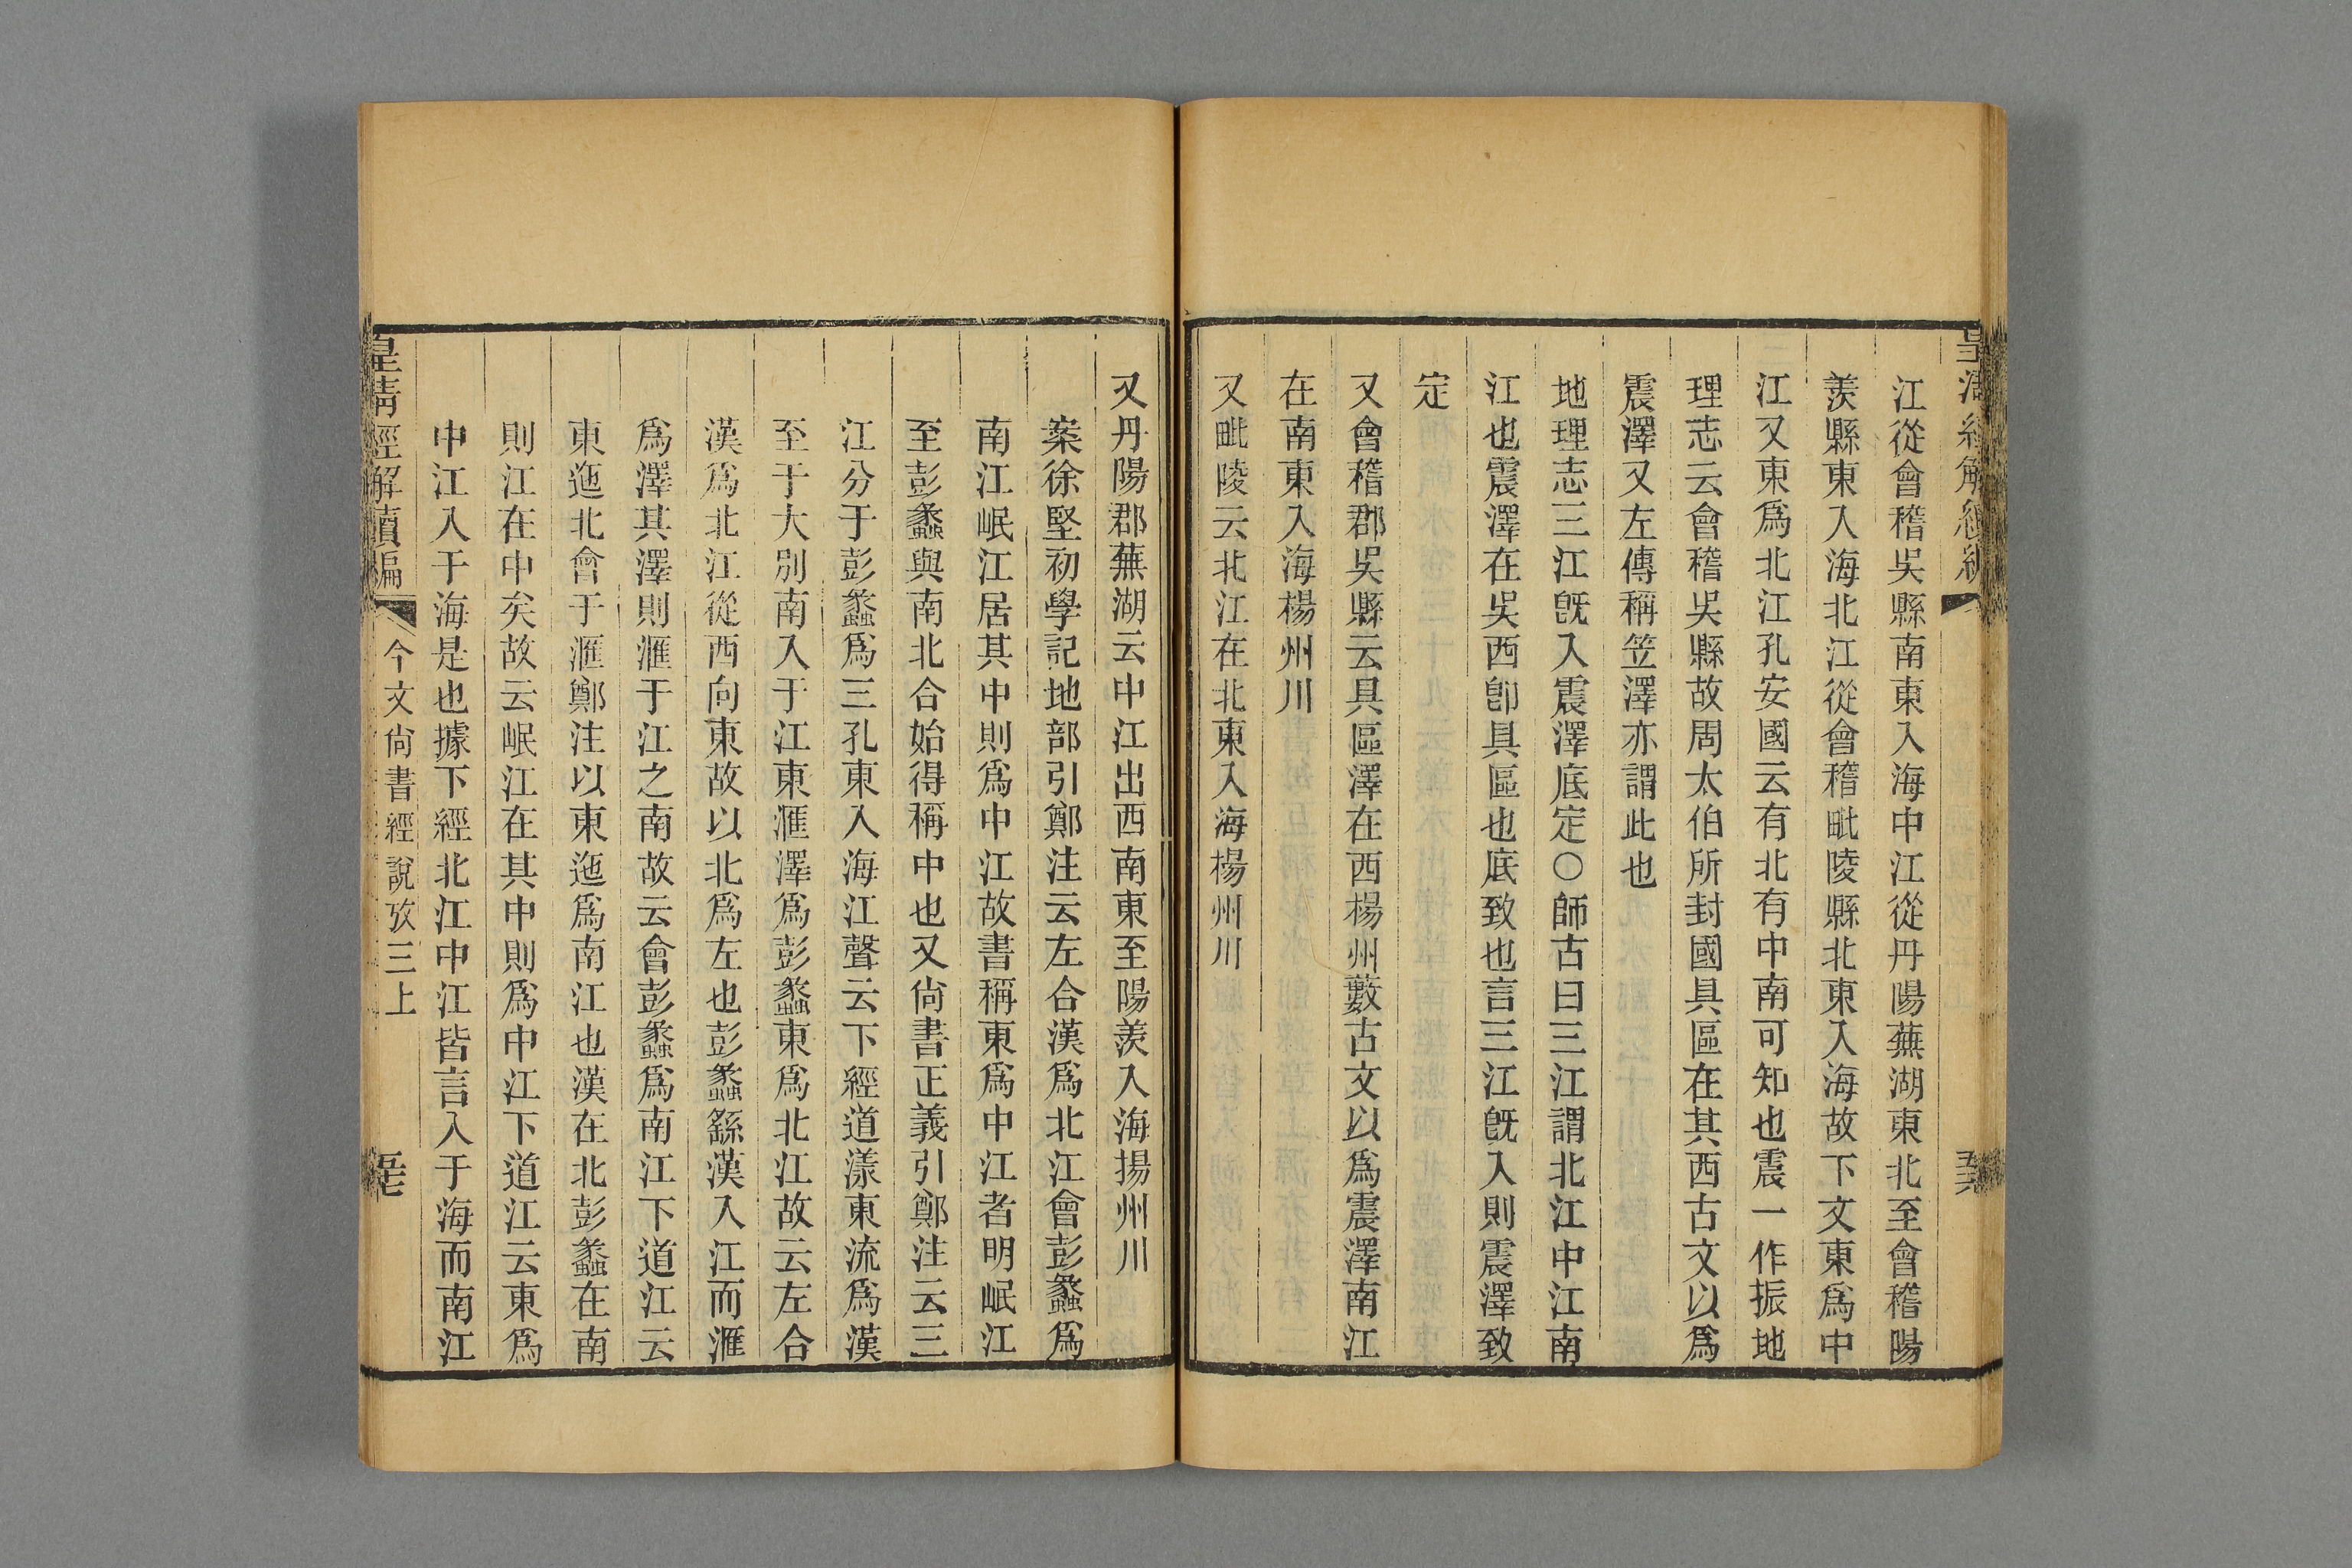 皇清經解續編
江從會稽吳縣南東入海中江從丹陽蕪湖東北至會稽陽
羨縣東入海北江從會稽毗陵縣北東入海故下文東爲中
江又東爲北江孔安國云有北有中南可知也震一作振地
理志云會稽吳縣故周太伯所封國具區在其西古文以爲
震澤又左傳稱笠澤亦謂此也
地理志三江旣入震澤底定○師古曰三江謂北江中江南
江也震澤在吳西卽具區也底致也言三江旣入則震澤致
定
又會稽郡吳縣云具區澤在西楊州藪古文以爲震澤南江
在南東入海楊州川
又毗陵云北江在北東入海楊州川
又丹陽郡蕪湖云中江出西南東至陽羨入海揚州川
案徐堅初學記地部引鄭注云左合漢爲北江會彭蠡爲
南江岷江居其中則爲中江故書稱東爲中江者明岷江
至彭蠡與南北合始得稱中也又尙書正義引鄭注云三
江分于彭蠡爲三孔東入海江聲云下經道漾東流爲漢
至于大別南入于江東滙澤爲彭蠡東爲北江故云左合
漢爲北江從西向東故以北爲左也彭蠡繇漢入江而滙
爲澤其澤則滙于江之南故云會彭蠡爲南江下道江云
東迆北會于滙鄭注以東迆爲南江也漢在北彭蠡在南
則江在中矣故云岷江在其中則爲中江下道江云東爲
中江入于海是也據下經北江中江皆言入于海而南江
皇清經解續編
今文尙書經說攷三上